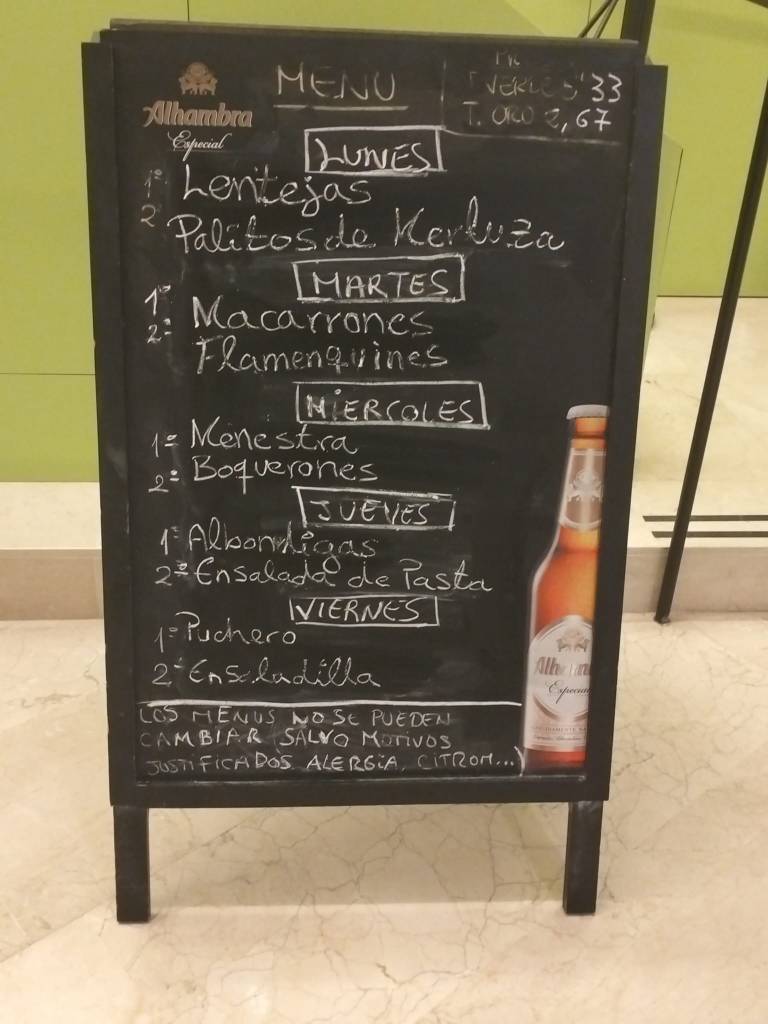 Alhambra
Especial
MENU
T. VERDE 5'33
T. ORO 2,67
LUNES
1º Lentejas
2º Palitos de Merluza
MARTES
1º Macarrones
2º Flamenquines
MIERCOLES
1º Menestra
2º Boquerones
JUEVES
1º Albondigas
2º Ensalada de Pasta
VIERNES
1º Puchero
2º Ensaladilla
LOS MENUS NO SE PUEDEN
CAMBIAR SALVO MOTIVOS
JUSTIFICADOS ALERGIA,
Alhambra
Especial